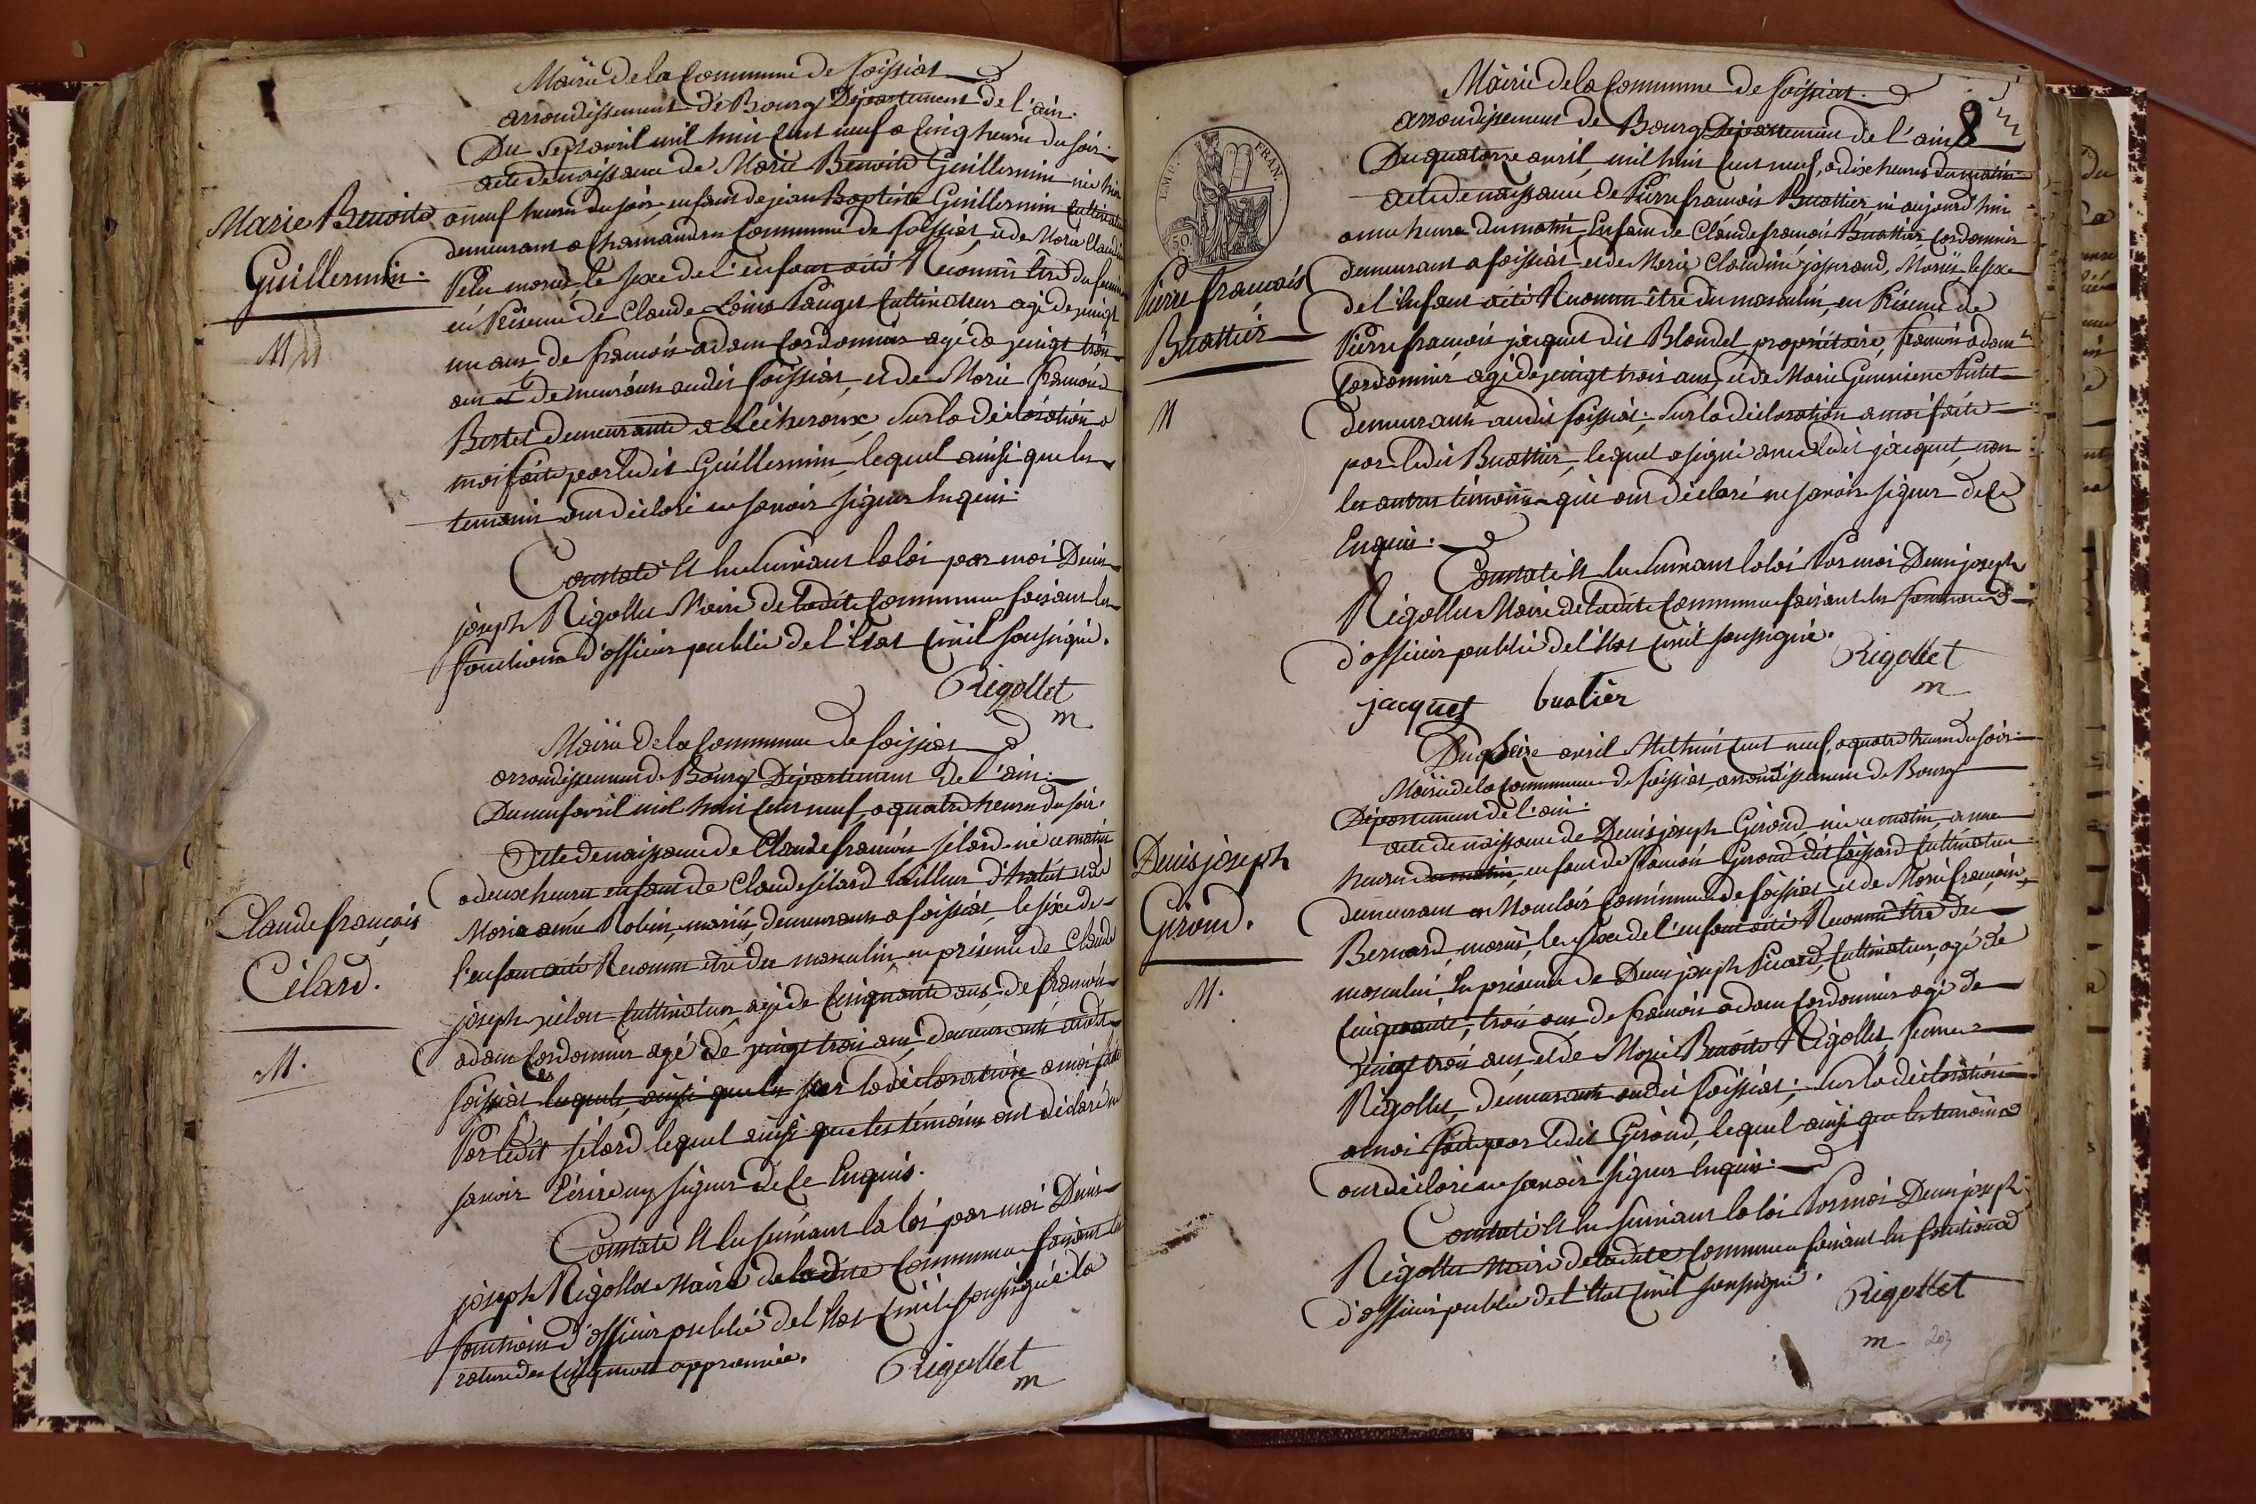 Mairie de la Commune de foissiat
arrondissement de Bourg Département de l'ain.
Du sept avril mil huit cent neuf a cinq heures du soir.
acte de naissance de Marie Benoite Guillermin née hier
Marie Benoite
Guillermin.
M
a neuf heures du soir, enfant de jean Baptiste Guillermin cultivateur
demeurant a Chamandre Commune de foissiat et de Marie Claudine
Pelu mariés, le sexe de l'enfant a été Reconnu être du feminin
en Présence de Claude Louis Pauget Cultivateur agé de vingt
un ans, de françois adam Cordonnier agé de vingt trois
ans et demeurans audit foissiat, et de Marie françoise
Bertet demeurante a Lécheroux, sur la déclaration a
moi faite par ledit Guillermin, lequel ainsi que les
temoins ont déclaré ne savoir signer Enquis.
Constaté Et lu Suivant la loi par moi Denis
joseph Rigollet Maire de ladite Commune faisant les
fonctions d'officier public de l'Etat Civil soussigné.
Rigollet
m
Mairie de la Commune de foissiat
arrondissement de Bourg Département de l'ain.
Du neuf avril mil huit Cent neuf, a quatre heures du soir.
Acte de naissance de Claude françois silard né ce matin
Claude françois
Cilard.
M.
a deux heures enfant de Claude silard tailleur d'habits et de
Marie aimée Robin, mariés, demeurans a foissiat, le sexe de
l'enfant a été Reconnu être du masculin, en présence de Claude
joseph Cultivateur agé de Cinquante ans, de françois
adam Cordonnier agé de vingt trois ans, demeurans audit
foissiat lesquels, ainsi que les sur la déclaration a moi faite
Par ledit silard lequel ainsi que les témoins ont déclaré ne
savoir Ecrire ny signer de ce Enquis.
Constaté Et lu suivant la loi par moi Denis
joseph Rigollet Maire de ladite Commune faisant les
fonctions d'officier public de l'Etat Civil soussigné. la
rature des Cinq mots approuvée.
Rigollet
m
Mairie de la Commune de foissiat.
8
arrondissement de Bourg Département de l'ain
Du quatorze avril, mil huit Cent neuf, a dix heures du matin
acte de naissance de Pierre françois Buattier né aujourd'hui
IMP. FRAN.
50.
Pierre françois
Buattier
M
a une heure du matin, Enfant de Claude françois Buattier Cordonnier
demeurant a foissiat et de Marie Claudine josserand, Mariés le sexe
de l'Enfant a été Reconnu être du masculin, en Présence de
Pierre françois jacquet dit Blondel propriétaire, françois adam
Cordonnier agé de vingt trois ans, et de Marie Genevieve Putet
demeurans audit foissiat; sur la déclaration a moi faite
par ledit Buattier, lequel a signé avec ledit jacquet, non
les autres témoins qui ont déclaré ne savoir signer de ce
Enquis.
Constaté Et lu Suivant la loi Par moi Denis joseph
Rigollet Maire de ladite Commune faisant les fonctions
d'officier public de l'Etat Civil soussigné.
Rigollet
m
jacquet buatier
Du seize avril Mil huit Cent neuf, a quatre heures du soir.
Mairie de la Commune de foissiat, arrondissement de Bourg
Département de l'ain.
acte de naissance de Denis joseph Giroud, né ce matin, a une
Denis joseph
Giroud.
M.
heure du matin, enfant de françois Giroud dit Cultivateur
demeurant a Commune de foissiat et de Marie françoise
Bernard, mariés, le sexe de l'enfant a été Reconnu être du
masculin, En présence de Denis joseph Picard, Cultivateur, agé de
Cinquante, trois ans de françois adam Cordonnier agé de
vingt trois ans, et de Marie Benoite Rigollet, femme
Rigollet, demeurans audit foissiat; sur la déclaration
a moi faite par ledit Giroud, lequel ainsi que les temoins
ont déclaré ne savoir signer Enquis.
Constaté Et lu suivant la loi Par moi Denis joseph
Rigollet Maire de ladite Commune faisant les fonctions
d'officier public de l'Etat Civil soussigné.
Rigollet
m
203